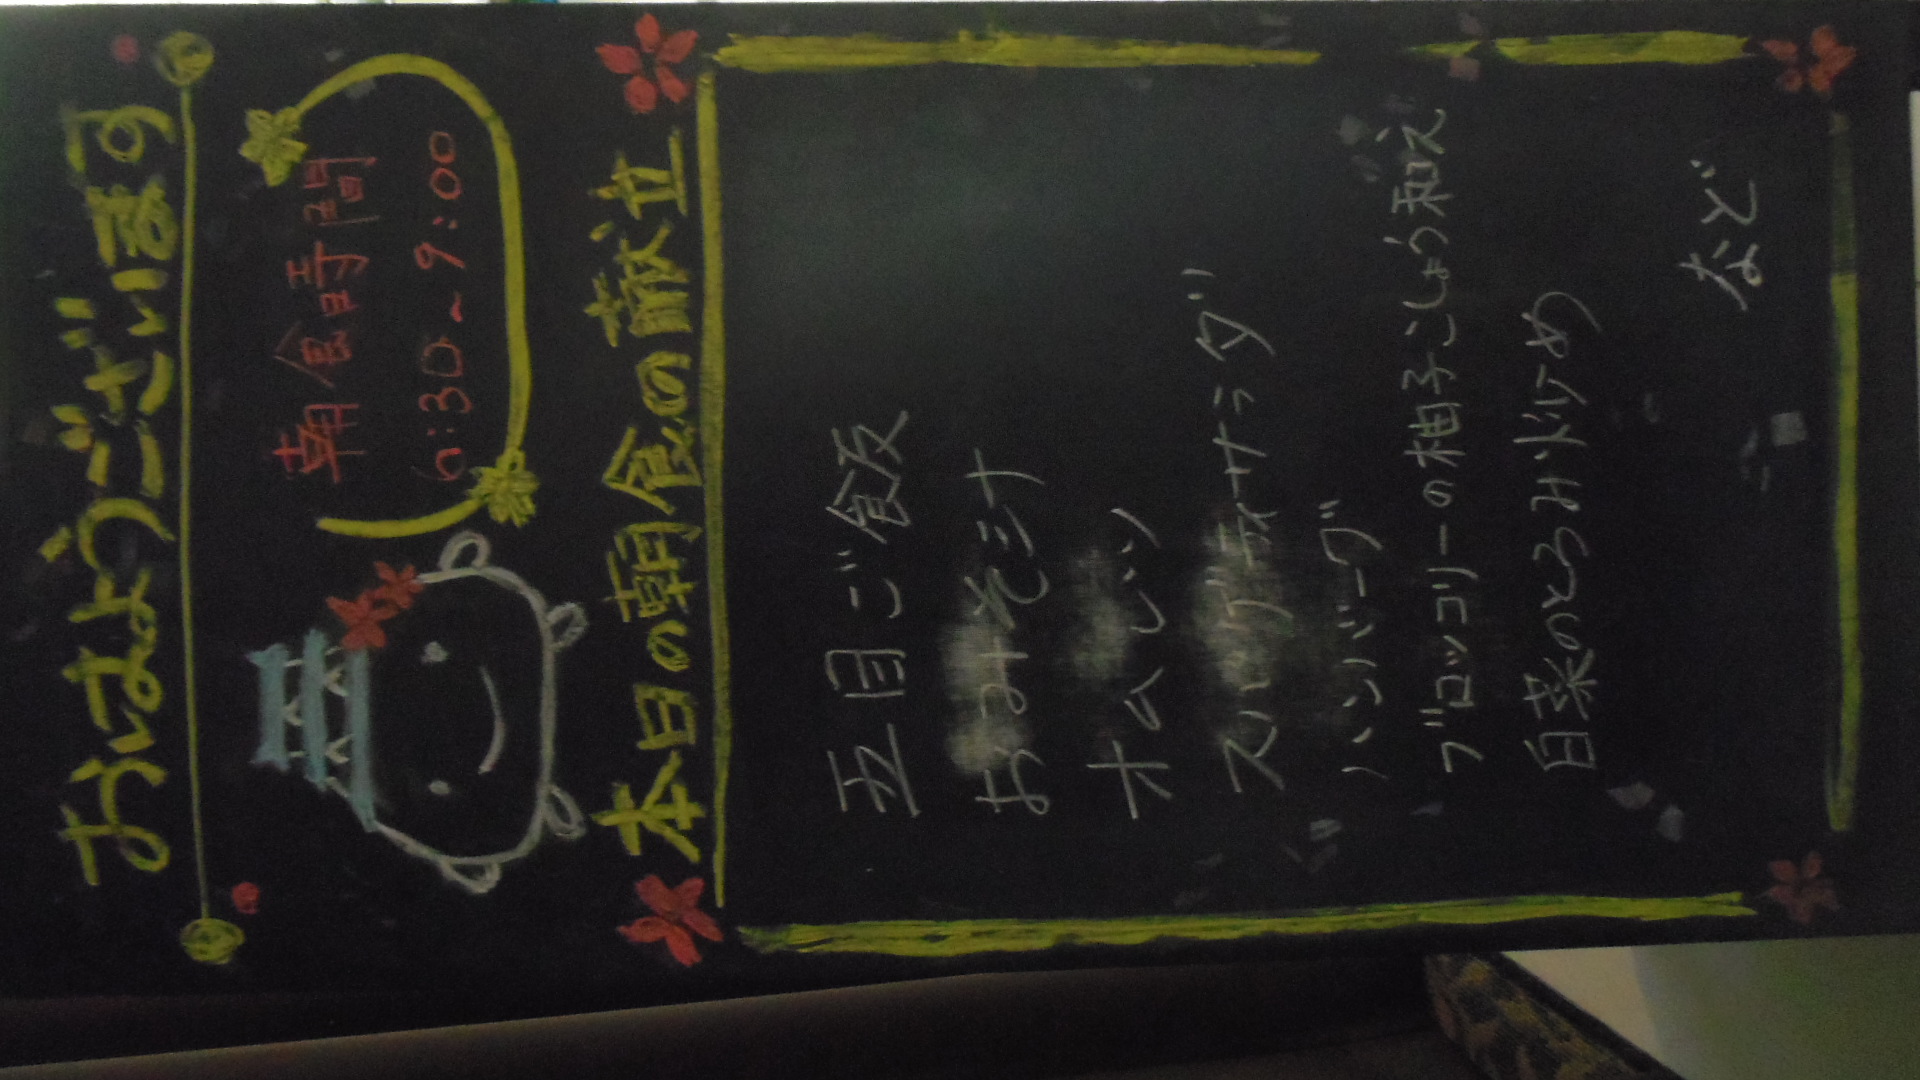 おはようございます
朝食時間
6:30~9:00
本日の朝食の献立
五目ご飯
おみそ汁
オムレツ
スパゲティサラダ
ハンバーグ
ブロッコリーの柚子こしょう和え
白菜のとろみ炒め
など